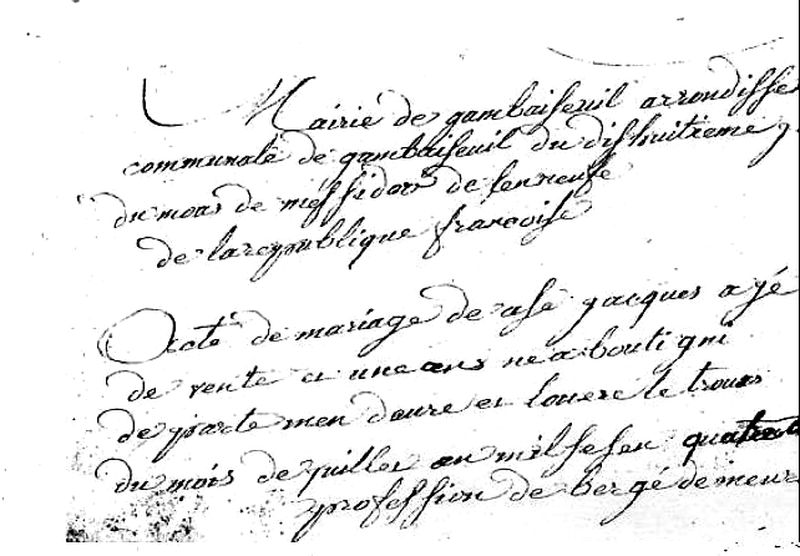 Mairie de gambaiseuil arrondisse
communate de gambaiseuil du dishuitieme j
du mois de messidor de lenneufe
de la republique françoise
acte de mariage de asé jacques agé
de vente et une ans ne a boutigni
departemen deure et louere le trouas
du mois de juillet an mil sesen quatre
profession de bergé demeur